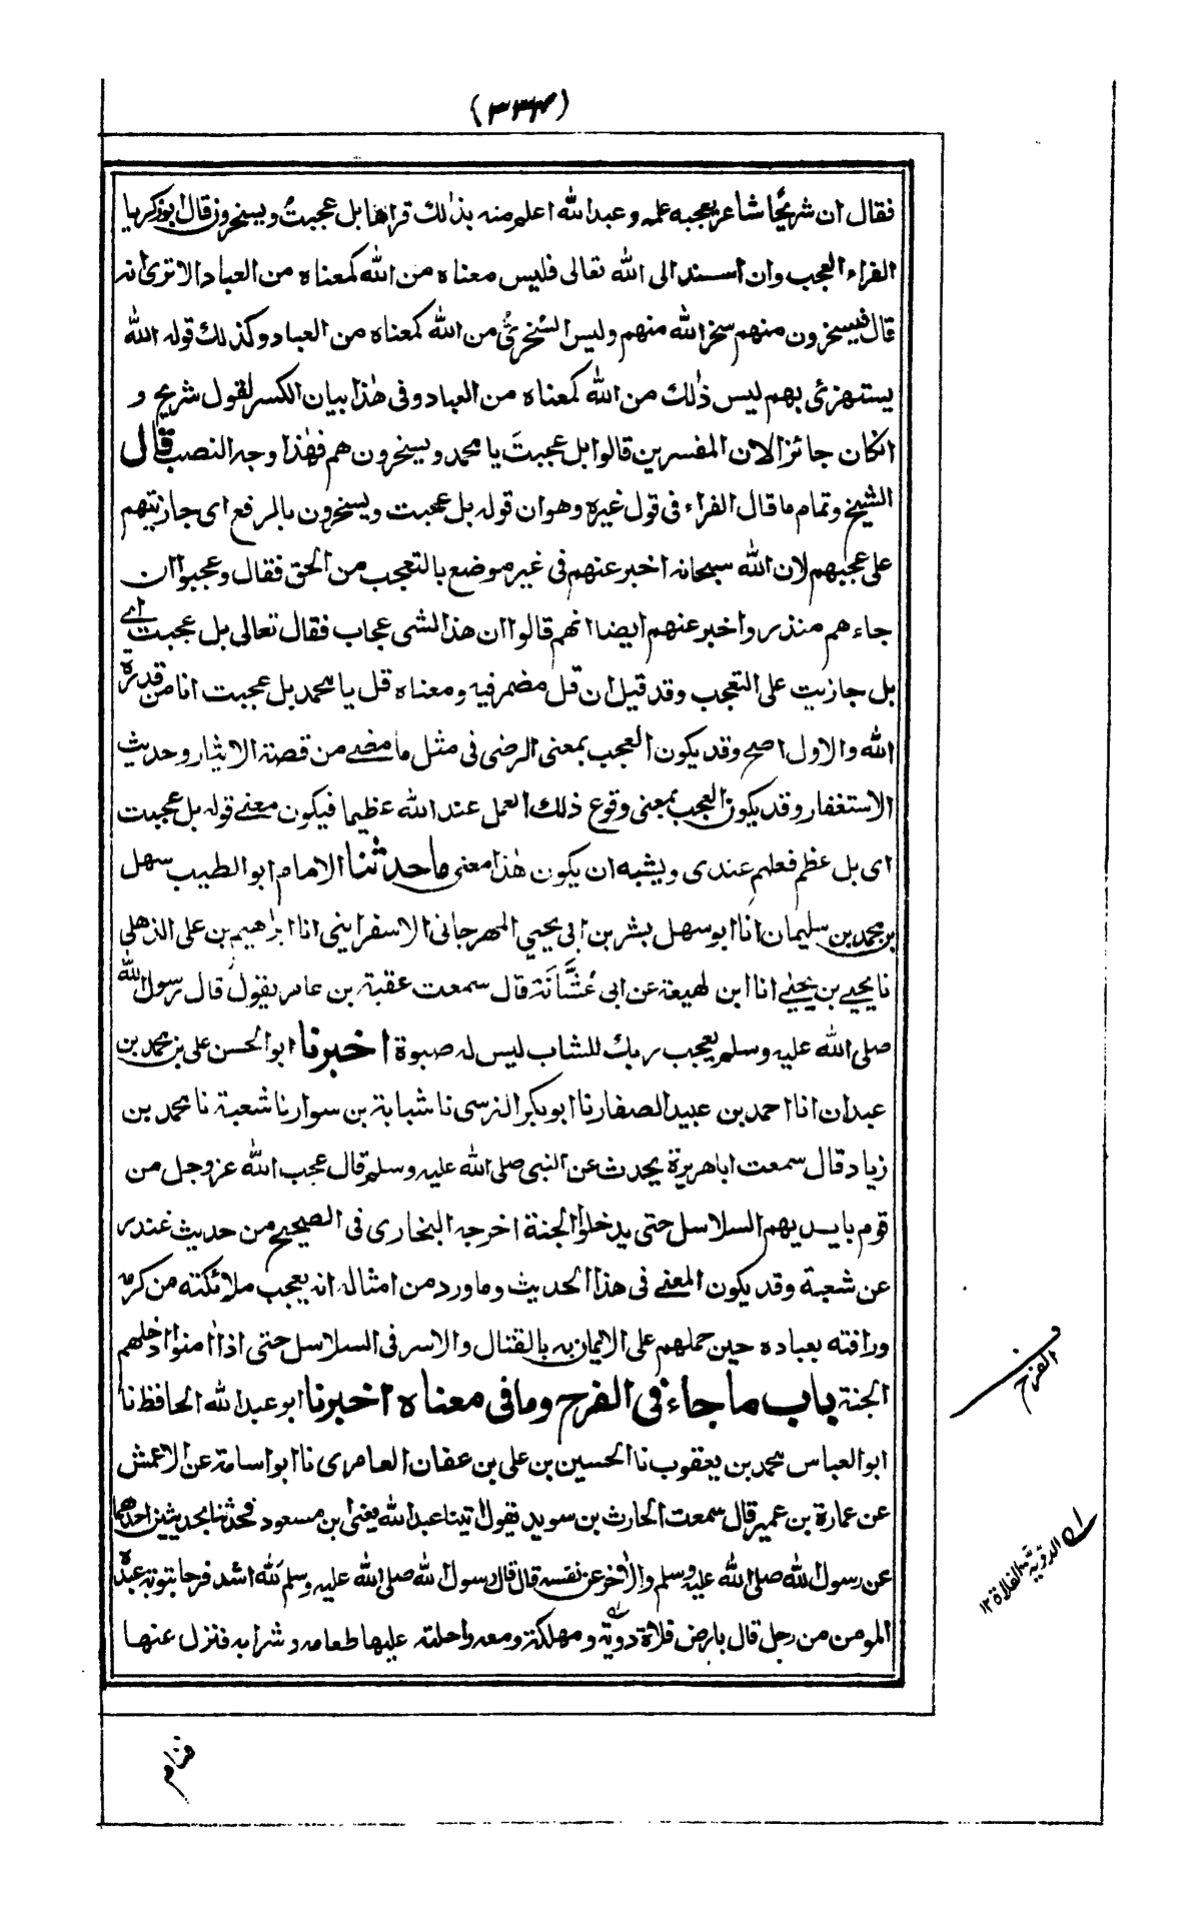 (٣٣٤)
فقال ان شريحا شاعر يعجبه علمه وعبد الله اعلم منه بذلك قراها بل عجبتُ ويسخرون قال ابو زكريا
الفراء العجب وان اسند الى الله تعالى فليس معناه من الله كمعناه من العباد الا ترى انه
قال فيسخرون منهم سخر الله منهم وليس السُّخرىُّ من الله كمعناه من العباد وكذلك قوله الله
يستهزئ بهم ليس ذٰلك من الله كمعناه من العباد وفى هٰذا بيان الكسر لقول شريح و
انكان جائزا لان المفسرين قالوا بل عجبتَ يا محمد ويسخرون هم فهٰذا وجه النصب قال
الشيخ وتمام ما قال الفراء فى قول غيره وهو ان قوله بل عجبت ويسخرون بالرفع اى جازيتهم
على عجبهم لان الله سبحانه اخبر عنهم فى غير موضع بالتعجب من الحق فقال وعجبوا ان
جاءهم منذر واخبر عنهم ايضا انهم قالوا ان هذا لشى عجاب فقال تعالى بل عجبت اے
بل جازيت على التعجب وقد قيل ان قل مضمر فيه ومعناه قل يا محمد بل عجبت انا من قدرة
الله والاول اصح وقد يكون العجب بمعنى الرضى فى مثل ما مضے من قصة الايثار وحديث
الاستغفار وقد يكون العجب بمعنى وقوع ذلك العمل عند الله عظيما فيكون معنے قوله بل عجبت
اى بل عظم فعلهم عندى ويشبه ان يكون هٰذا معنى ما حدثنا الامام ابو الطيب سهل
بن محمد بن سليمان انا ابو سهل بشر بن ابى يحيي المهرجانى الاسفراينى انا ابراهيم بن على الذهلى
نا يحيے بن يحيے انا ابن لهيعة عن ابى عُشَّانَة قال سمعت عقبة بن عامر يقول قال رسول الله
صلى الله عليه وسلم يعجب ربك للشاب ليس له صبوة اخبرنا ابو الحسن على بن محمد بن
عبدان انا احمد بن عبيد الصفار نا ابو بكر النرسى نا شبابة بن سوار نا شعبة نا محمد بن
زياد قال سمعت ابا هريرة يحدث عن النبى صلى الله عليه وسلم قال عجب الله عز وجل من
قوم بايديهم السلاسل حتى يدخلوا الجنة اخرجه البخارى فى الصحيح من حديث غندر
عن شعبة وقد يكون المعنے فى هذا الحديث وما ورد من امثاله انه يعجب ملائكته من كرمه
ورافته بعباده حين حملهم على الايمان به بالقتال والاسر فى السلاسل حتى اذا اٰمنوا ادخلهم
الجنة باب ما جاء فى الفرح وما فى معناه اخبرنا ابو عبد الله الحافظ نا
ابو العباس محمد بن يعقوب نا الحسين بن على بن عفان العامرى نا ابو اسامة عن الاعمش
عن عمارة بن عمير قال سمعت الحارث بن سويد يقول اتينا عبد الله يعنى ابن مسعود فحدثنا بحديثين احدهما
عن رسول الله صلى الله عليه وسلم والاٰخر عن نفسه قال قال رسول الله صلى الله عليه وسلم لَله اشد فرحا بتوبة عبده
المومن من رجل قال بارض فلاة دوية ومهلكة ومعه راحلته عليها طعامه وشرابه فنزل عنها
الفرح
الدوية الفلاة ١٢
فنام